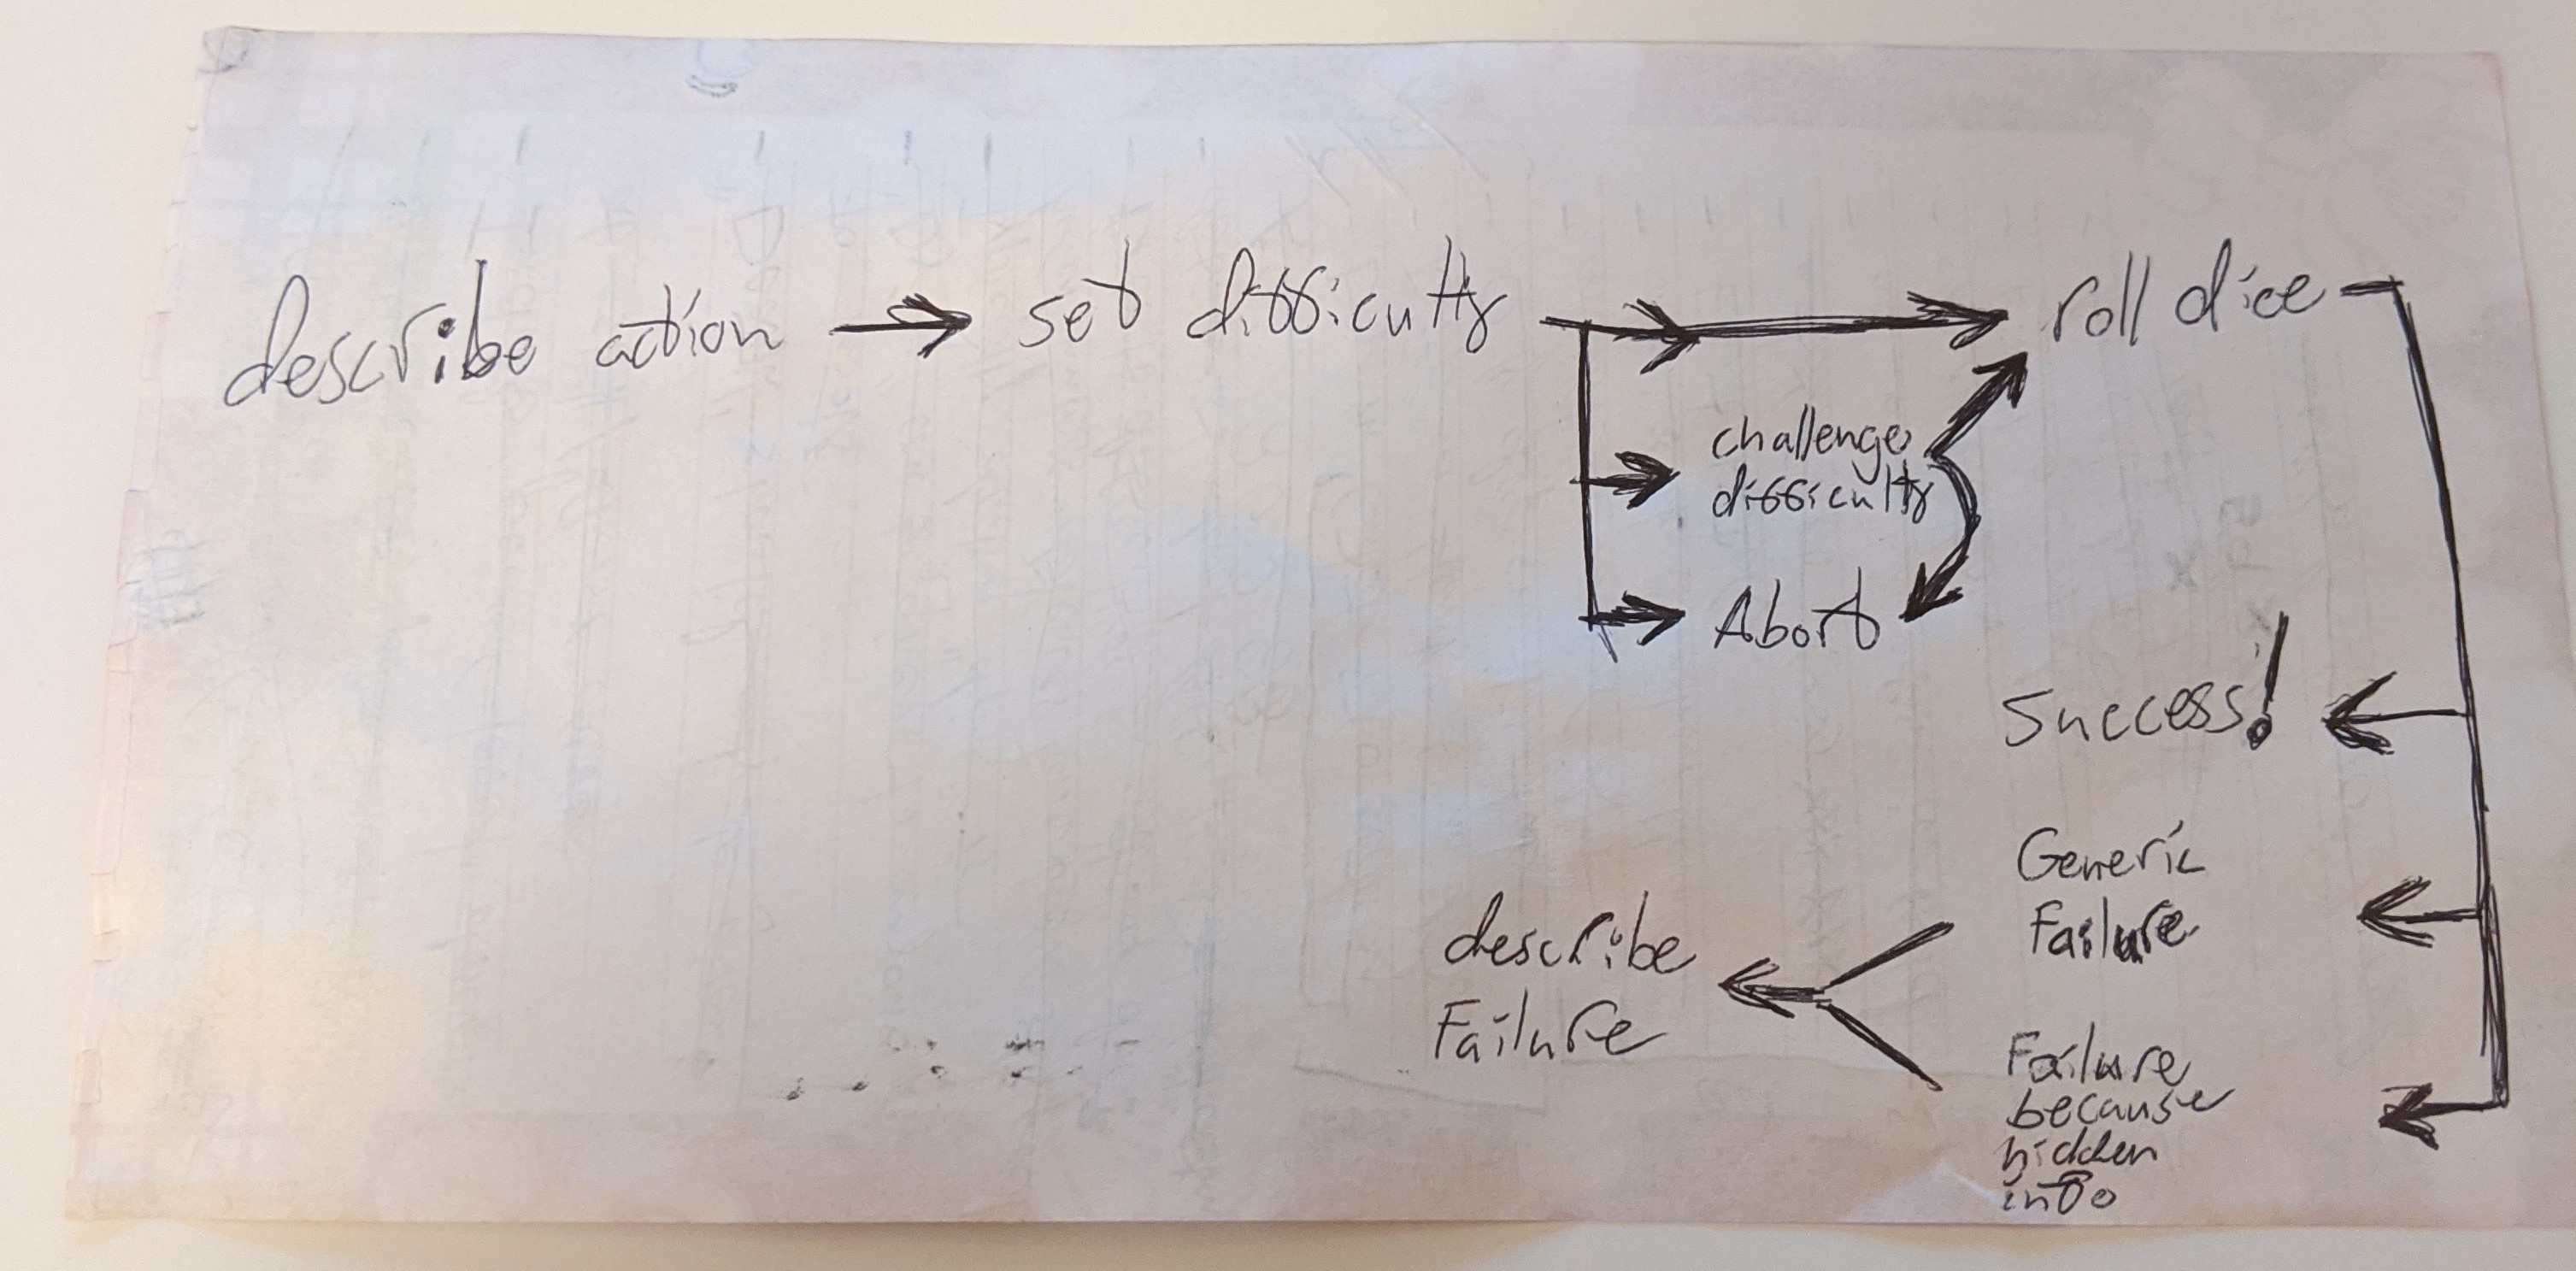 describe action
set difficulty
roll dice
challenge
difficulty
Abort
Success!
Generic
Failure
Failure
because
hidden
info
describe
Failure